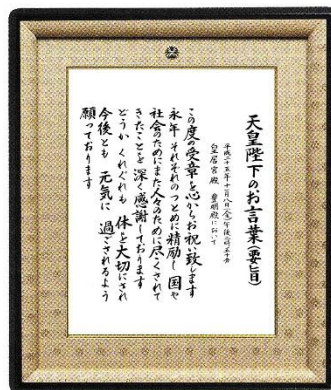 天皇陛下のお言葉(要旨)
平成二十五年十一月八日(金)午後
皇居宮殿 豊明殿において
この度の受章を心からお祝い致します
永年 それぞれのつとめに精励し 国や
社会のためにまた人々のために尽くされて
きたことを 深く感謝しております
どうか くれぐれも 体を大切にされ
今後とも 元気に 過ごされるよう
願っております